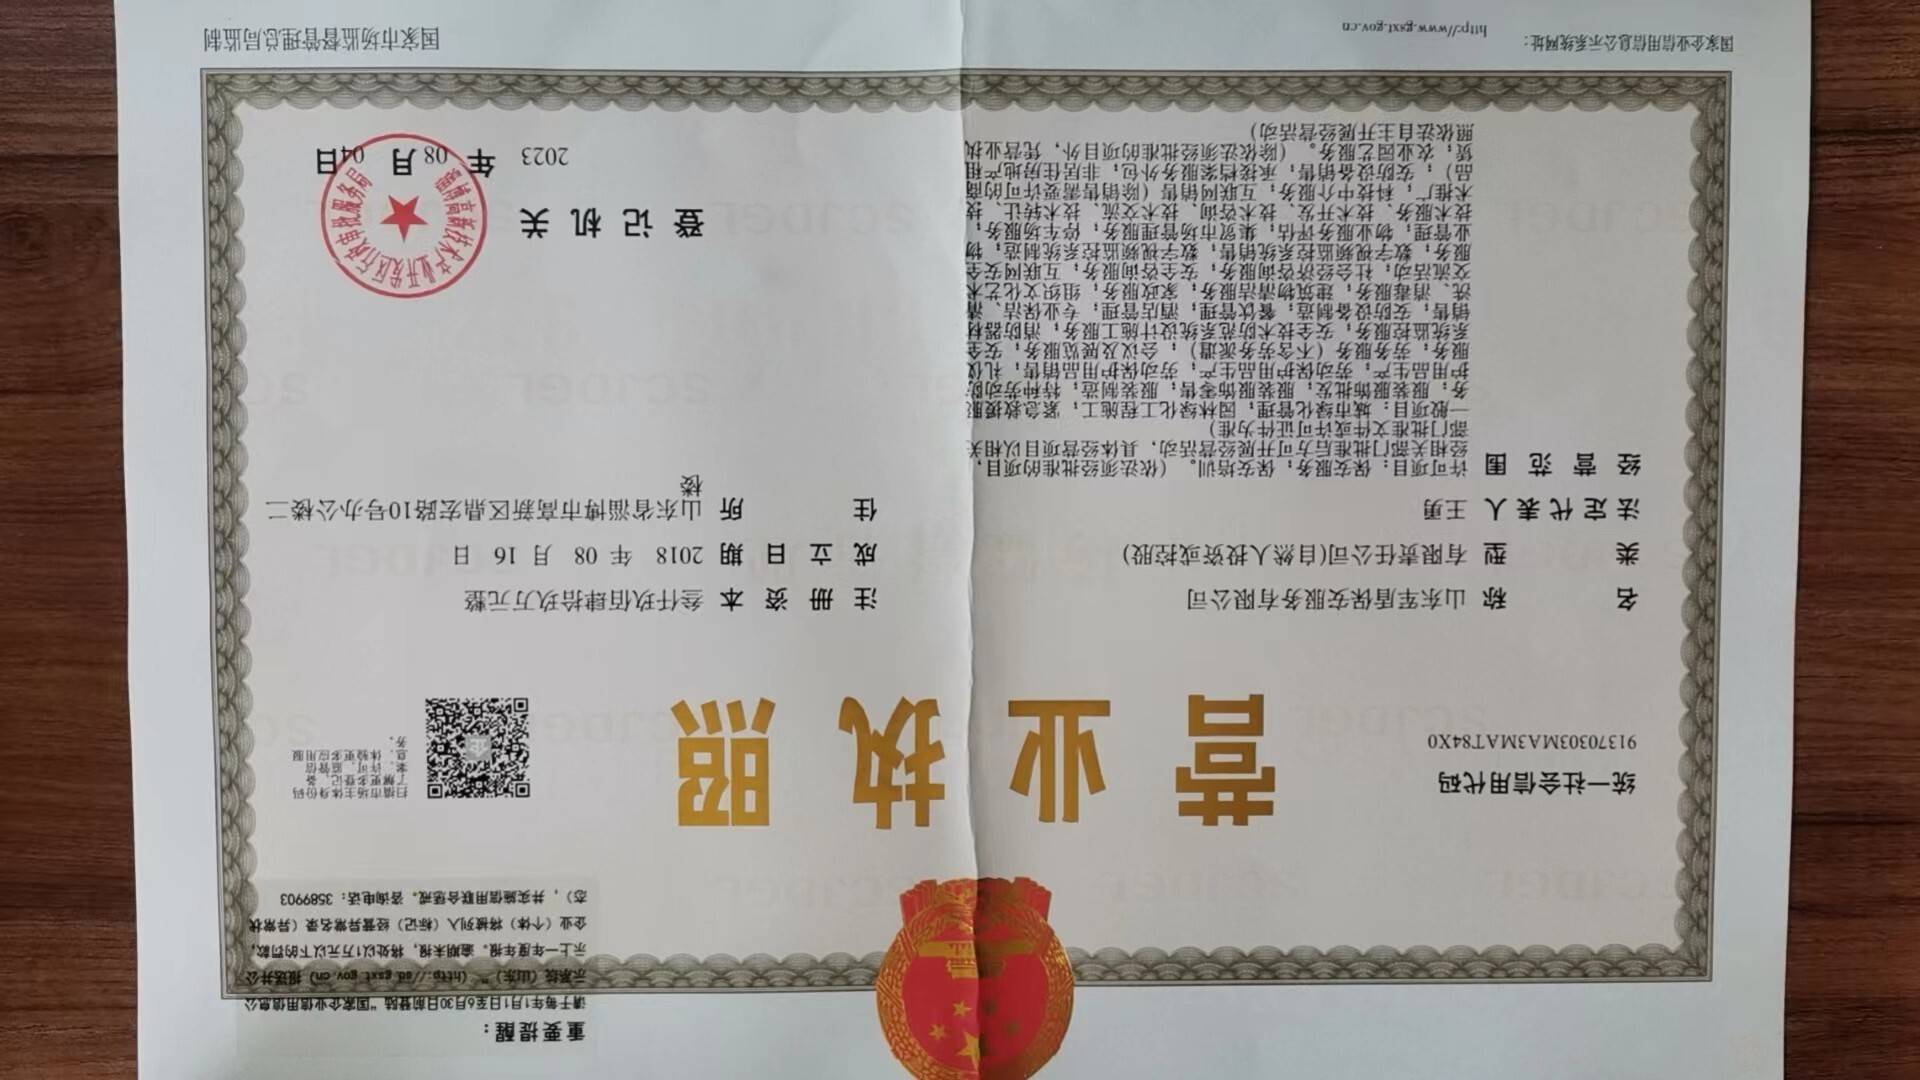 重要提醒：
请于每年1月1日至6月30日前登陆“国家企业信用信息公
示系统（山东）”（http://sd.gsxt.gov.cn）报送并公
示上一年度年报。逾期未报，将处以1万元以下的罚款，
企业（个体）将被列入（标记）经营异常名录（异常状
态），并实施信用联合惩戒。咨询电话：3589903
统一社会信用代码
91370303MA3MAT84X0
营业执照
扫描市场主体身份码
了解更多登记、备
案、许可、监管信
息，体验更多应用服
务。
名称 山东军盾保安服务有限公司
类型 有限责任公司(自然人投资或控股)
法定代表人 王勇
经营范围 许可项目：保安服务；保安培训。（依法须经批准的项目，
经相关部门批准后方可开展经营活动，具体经营项目以相关
部门批准文件或许可证件为准）
一般项目：城市绿化管理；园林绿化工程施工；紧急救援服
务；服装服饰批发；服装服饰零售；服装制造；特种劳动防
护用品生产；劳动保护用品生产；劳动保护用品销售；礼仪
服务；劳务服务（不含劳务派遣）；会议及展览服务；安全
系统监控服务；安全技术防范系统设计施工服务；消防器材
销售；安防设备制造；餐饮管理；酒店管理；专业保洁、清
洗、消毒服务；建筑物清洁服务；家政服务；组织文化艺术
交流活动；社会经济咨询服务；安全咨询服务；互联网安全
服务；数字视频监控系统销售；数字视频监控系统制造；物
业管理；物业服务评估；集贸市场管理服务；停车场服务；
技术服务、技术开发、技术咨询、技术交流、技术转让、技
术推广；科技中介服务；互联网销售（除销售需要许可的商
品）；安防设备销售；承接档案服务外包；非居住房地产租
赁；农业园艺服务。（除依法须经批准的项目外，凭营业执
照依法自主开展经营活动）
注册资本 叁仟玖佰肆拾玖万元整
成立日期 2018年08月16日
住所 山东省淄博市高新区鼎宏路10号办公楼二
楼
登记机关
淄博高新技术产业开发区行政审批服务局
2023年08月04日
国家企业信用信息公示系统网址：
http://www.gsxt.gov.cn
国家市场监督管理总局监制